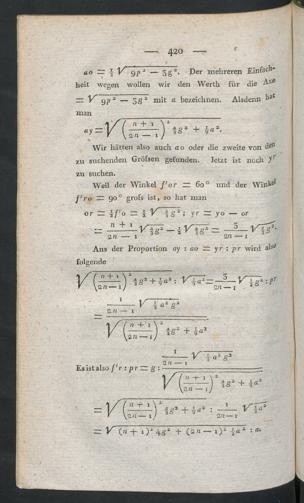 — 420 —
ao = ½ √ 9p² — 3g². Der mehreren Einfach-
heit wegen wollen wir den Werth für die Axe
= √ 9p² — 3g² mit a bezeichnen. Alsdenn hat
man
ay = √ ( (n + 1)/(2n — 1) )² ⁴⁄₃ g² + ¼ a².
Wir hätten also auch ao oder die zweite von den
zu suchenden Größen gefunden. Jetzt ist noch yr
zu suchen.
Weil der Winkel f'or = 60° und der Winkel
f'ro = 90° groß ist, so hat man
or = ½ f'o = ½ √ ⁴⁄₃ g²; yr = yo — or
= (n + 1)/(2n — 1) √ ⁴⁄₃ g² — ½ √ ⁴⁄₃ g² = 3/(2n — 1) √ ⅓ g².
Aus der Proportion ay : ao = yr : pr wird also
folgende
√ ( (n + 1)/(2n — 1) )² ⁴⁄₃ g² + ¼ a² : √ ¼ a² = 3/(2n — 1) √ ⅓ g² : pr
= 1/(2n — 1) √ ¾ a² g² / √ ( (n + 1)/(2n — 1) )² ⁴⁄₃ g² + ¼ a²
Es ist also f'r : pr = g : 1/(2n — 1) √ ¾ a² g² / √ ( (n + 1)/(2n — 1) )² ⁴⁄₃ g² + ¼ a²
= √ ( (n + 1)/(2n — 1) )² ⁴⁄₃ g² + ¼ a² : 1/(2n — 1) √ ¾ a²